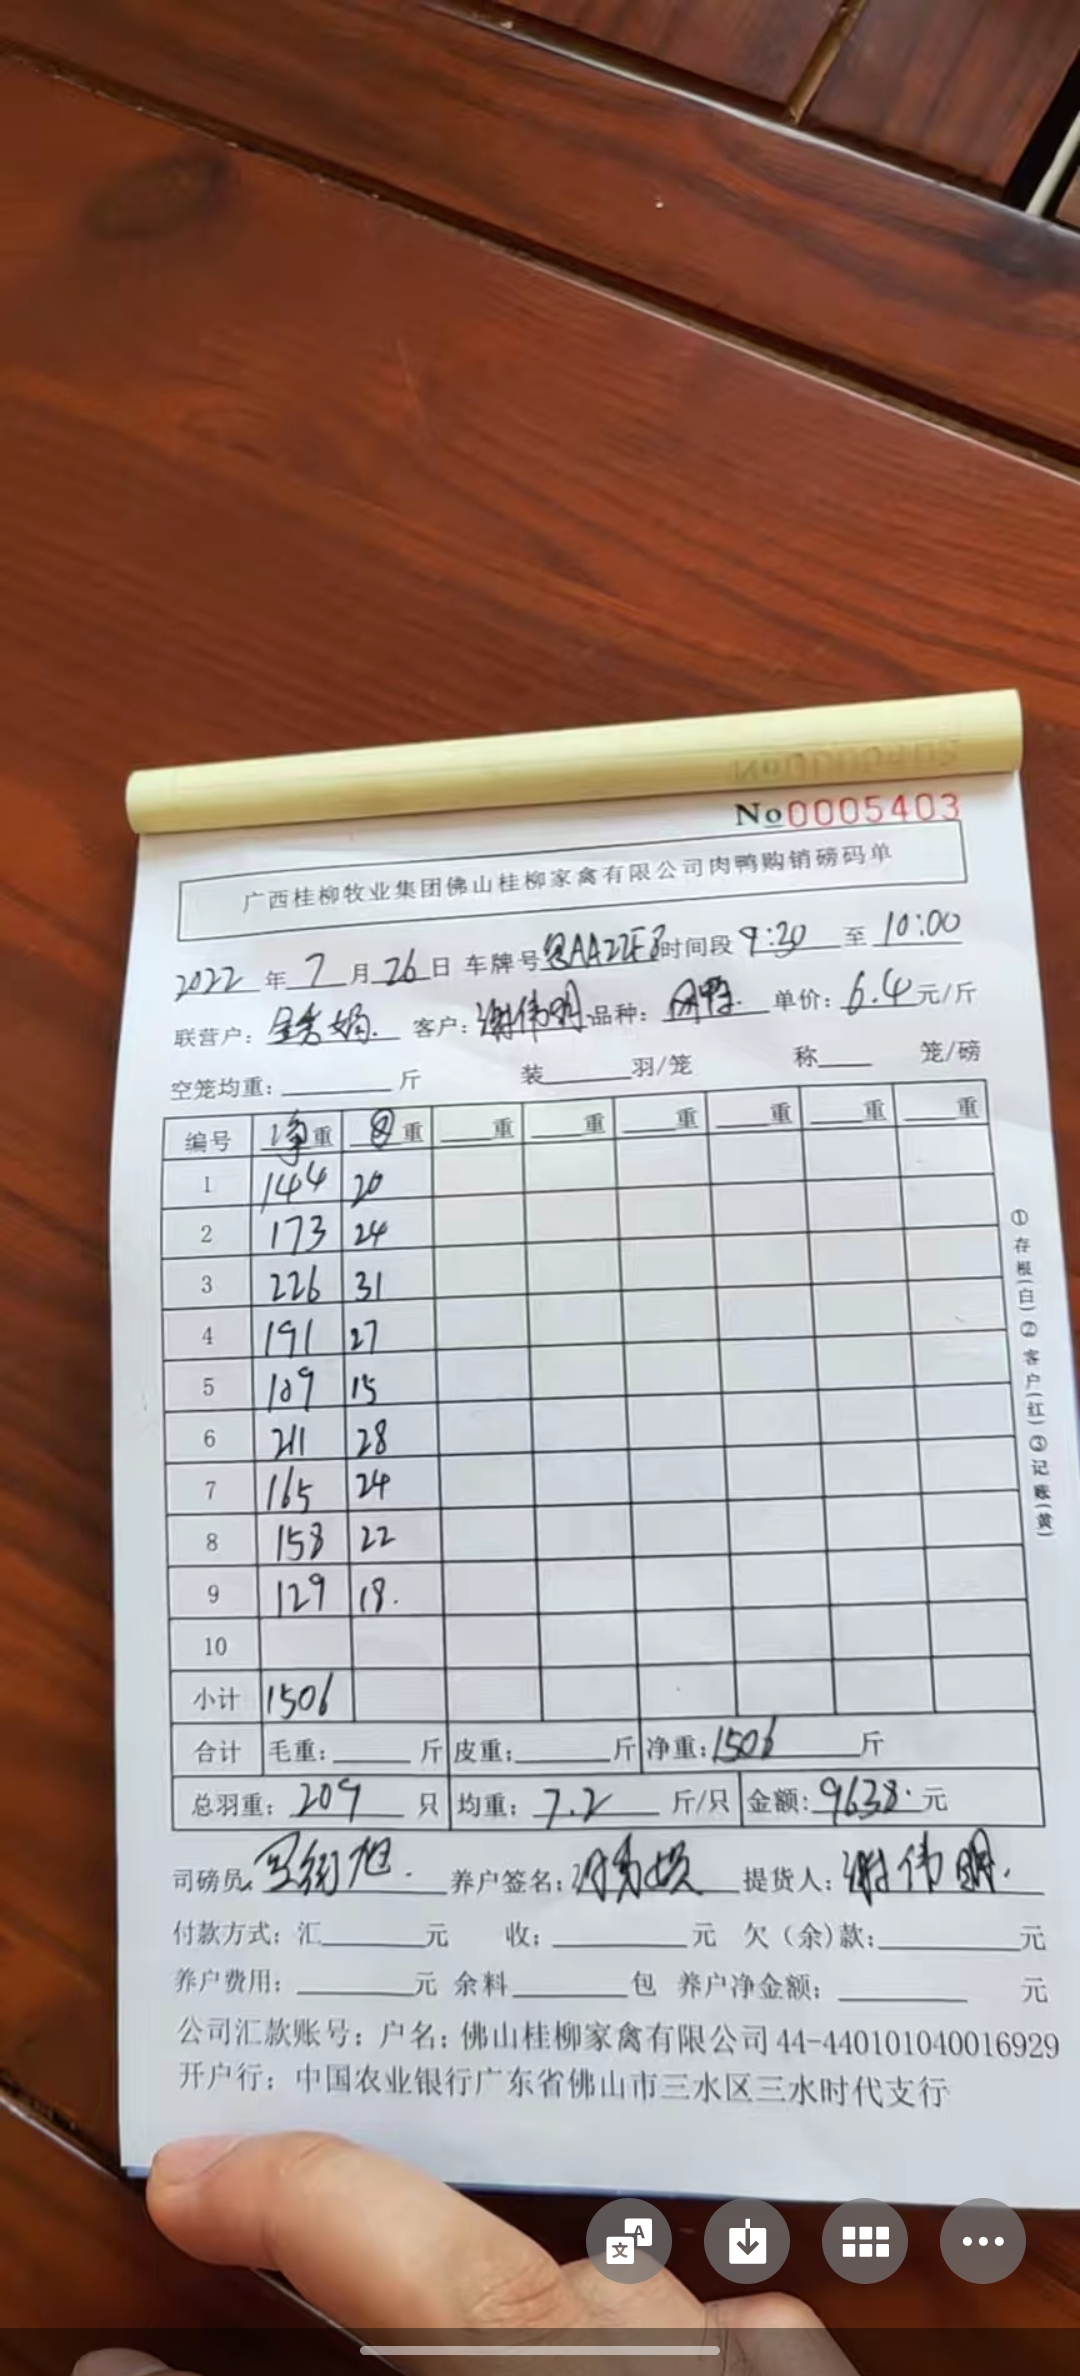 No0005403
广西桂柳牧业集团佛山桂柳家禽有限公司肉鸭购销磅码单
2022年7月26日 车牌号粤AA22E3时间段9:20至10:00
联营户： 客户：谢伟明 品种： 单价：6.4元/斤
空笼均重：斤 装羽/笼 称笼/磅
编号 净重 只重 重 重 重 重 重 重
1 144 20
2 173 24
3 226 31
4 191 27
5 109 15
6 211 28
7 165 24
8 158 22
9 129 18.
10
小计 1506
合计 毛重：斤 皮重：斤 净重：1506斤
总羽重：209只 均重：7.2斤/只 金额：9638.元
司磅员： 养户签名： 提货人：谢伟明.
付款方式：汇元 收：元 欠（余）款：元
养户费用：元 余料包 养户净金额：元
公司汇款账号：户名：佛山桂柳家禽有限公司 44-440101040016929
开户行：中国农业银行广东省佛山市三水区三水时代支行
①存根(白)②客户(红)③记账(黄)